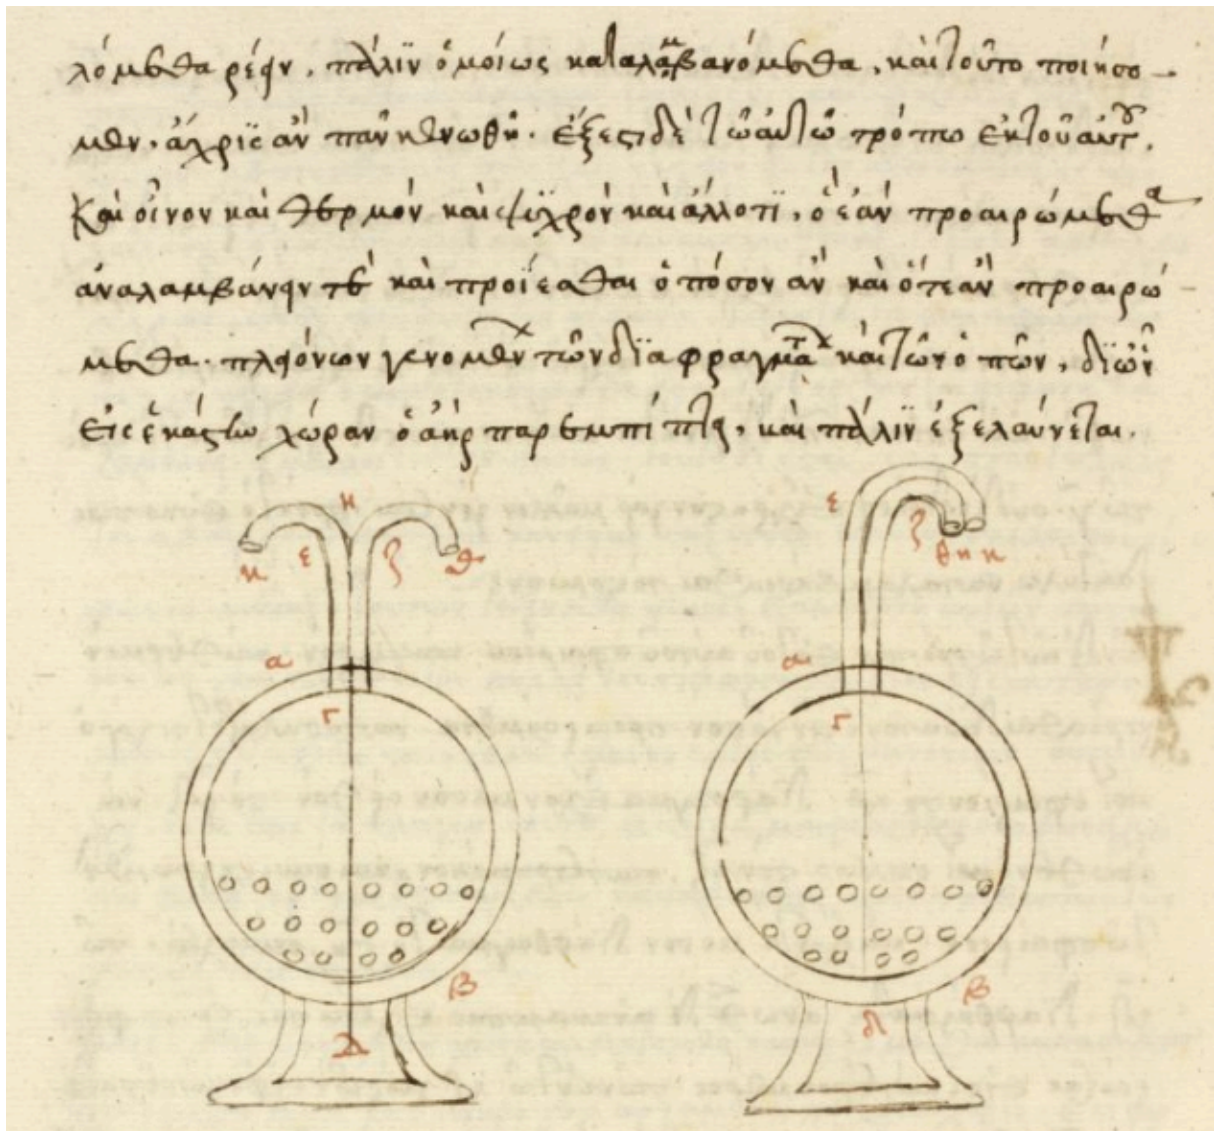 λόμεθα ρέειν, πάλιν ὁμοίως καταλαμβανόμεθα, καὶ τοῦτο ποιήσο-
μεν, ἄχρις ἂν πᾶν κενωθῇ. ἔξεστι δὲ τῷ αὐτῷ τρόπῳ ἐκ τοῦ αὐτοῦ,
καὶ οἶνον καὶ θερμὸν καὶ ψυχρὸν καὶ ἄλλο τι, ὃ ἐὰν προαιρώμεθα
ἀναλαμβάνειν τε καὶ προΐεσθαι ὁπόσον ἂν καὶ ὅτε ἂν προαιρώ-
μεθα. πλειόνων γενομένων τῶν διαφραγμάτων καὶ τῶν ὀπῶν, δι' ὧν
εἰς ἑκάστην χώραν ὁ ἀὴρ παρεμπίπτει, καὶ πάλιν ἐξελαύνεται.
κ
η ε ζ θ
α
γ
β
Δ
ε ζ
θ η κ
α
γ
β
δ